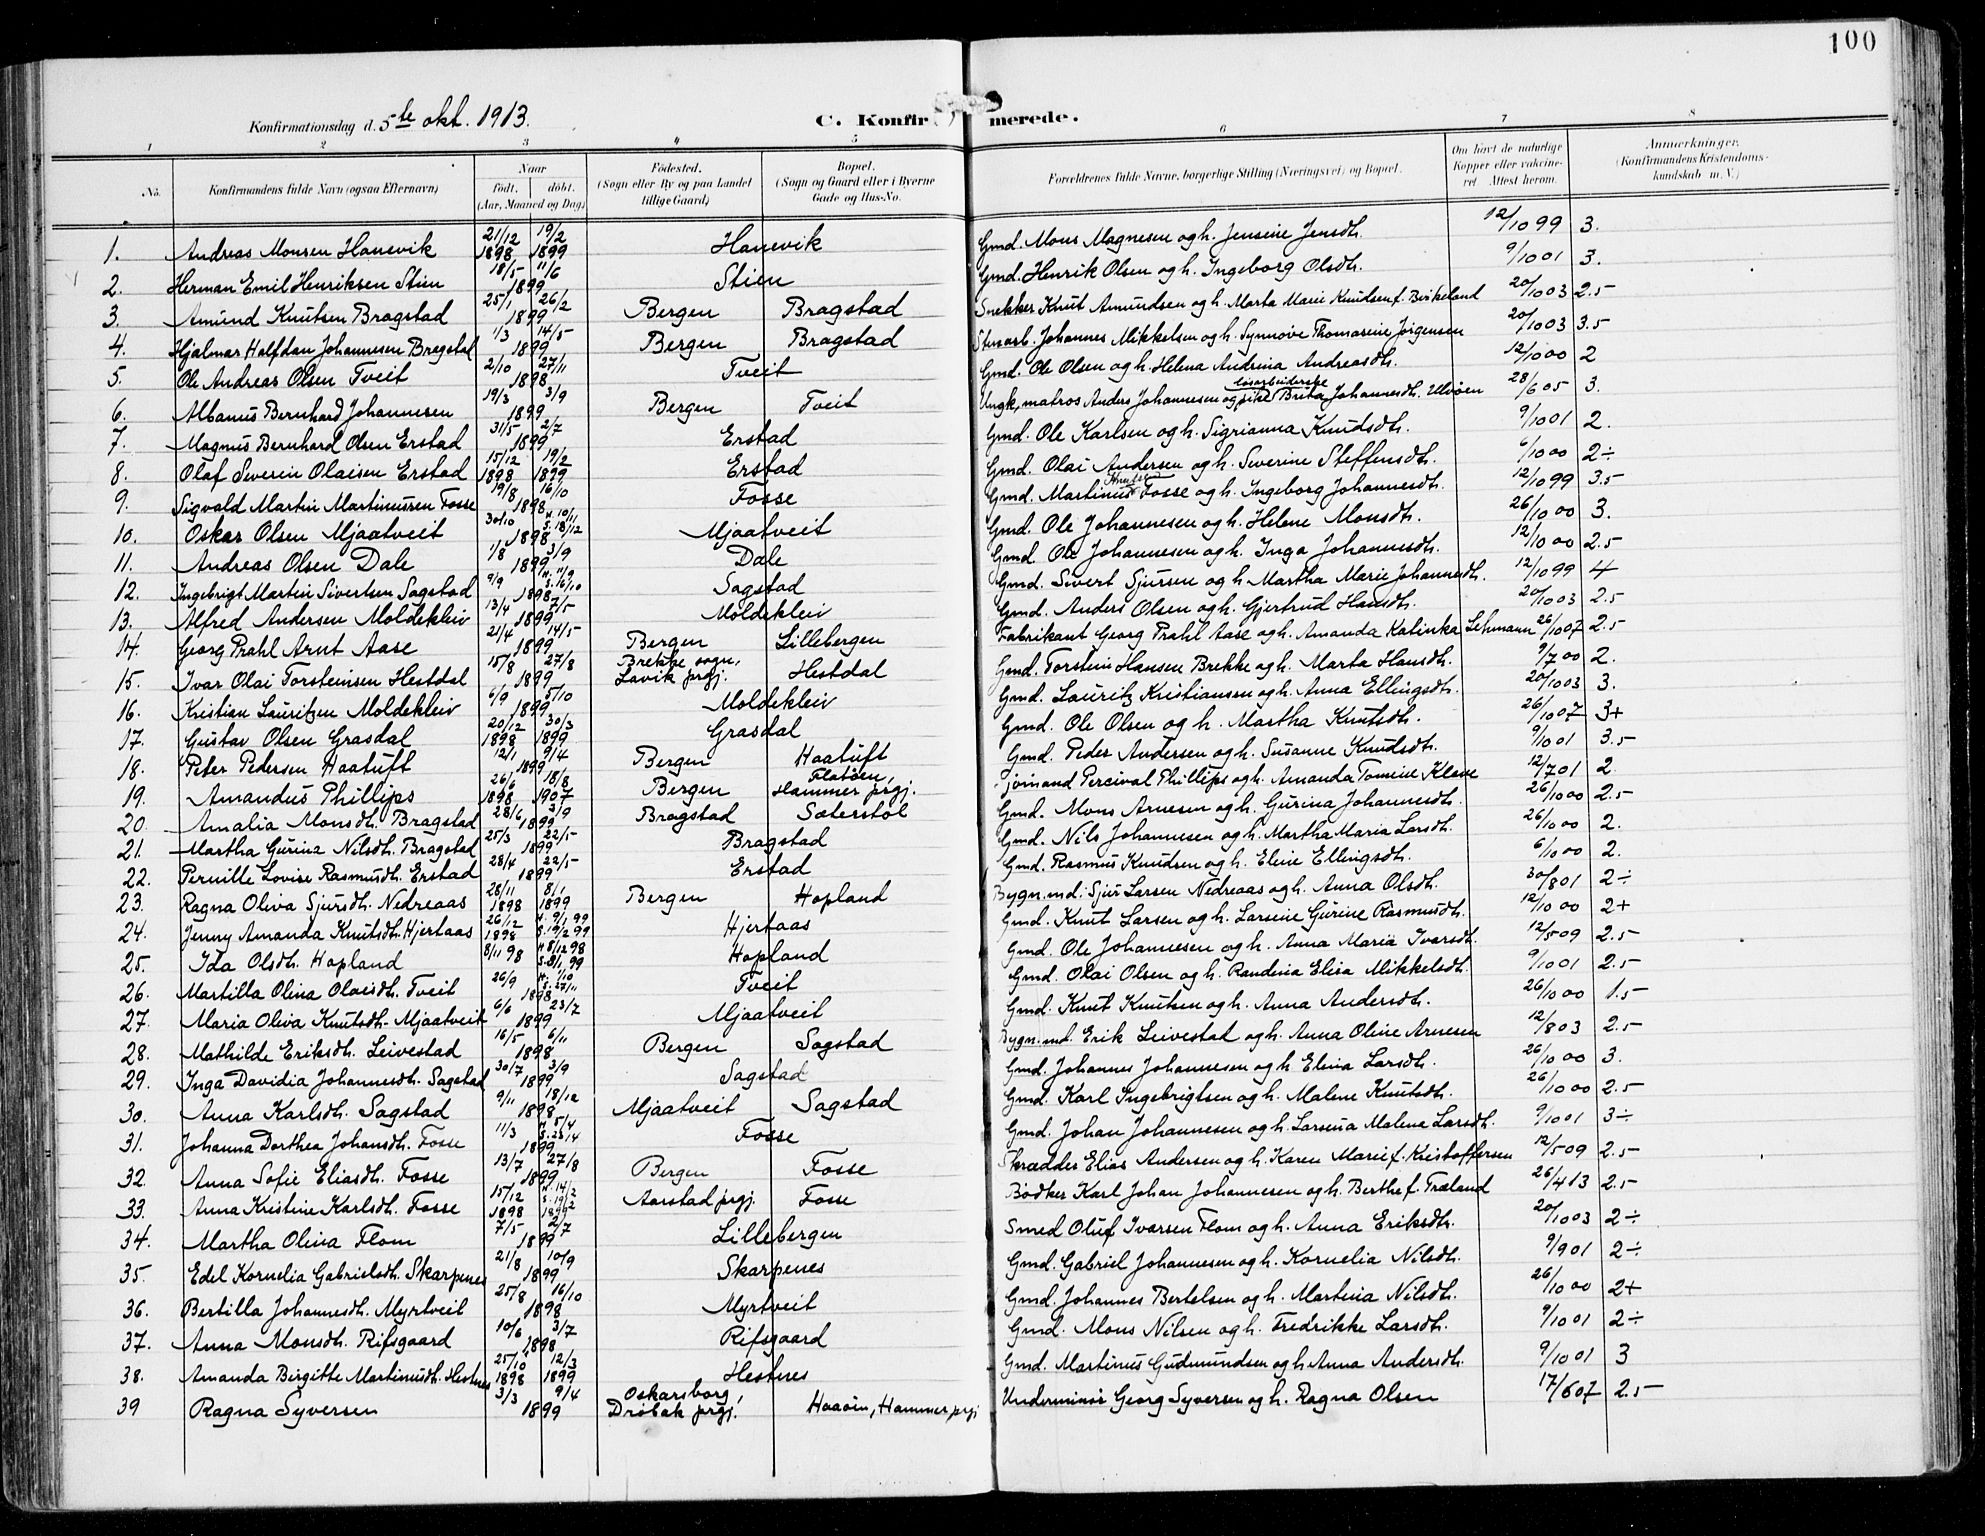 100
Konfirmationsdag d. 5te okt. 1913.
C. Konfirmerede.
1 2 3 4 5 6 7 8
No. Konfirmandens fulde Navn (ogsaa Efternavn) Naar født. døbt. (Aar, Maaned og Dag) Fødested. (Sogn eller By og paa Landet tillige Gaard) Bopæl. (Sogn og Gaard eller i Byerne Gade og Hus-No. Forældrenes fulde Navne, borgerlige Stilling (Næringsvei) og Bopæl. Om havt de naturlige Kopper eller vaccineret Attest herom. Anmerkninger. (Konfirmandens Kristendomskundskab m. V.)
1. Andreas Monsen Hanevik 21/12 1898 19/2 1899 Hanevik Gmd. Mons Magnesen og h. Jensine Jensdh. 12/10 99 3.
2. Herman Emil Henriksen Stien 18/5 11/6 1899 Stien Gmd. Henrik Olsen og h. Ingeborg Olsdh. 9/10 01 3.
3. Amund Knutsen Bragstad 25/1 26/2 1899 Bergen Bragstad Snekker Knut Amundsen og h. Marta Marie Knudsen f. Birkeland 20/10 03 2.5
4. Hjalmar Halfdan Johannesen Bragstad 1/3 14/5 1899 Bergen Bragstad Stenarb. Johannes Mikkelsen og h. Synnøve Thomasine Jørgensen 20/10 03 3.5
5. Ole Andreas Olsen Tveit 2/10 27/11 1898 Tveit Gmd. Ole Olsen og h. Helena Andrina Andreasdh. 12/10 00 2
6. Albanus Bernhard Johannesen 19/3 3/9 1899 Bergen Tveit Ungk, matros Anders Johannesen og pike løsarbeiderske Brita Johannesdh. Ulvøen 28/6 05 3.
7. Magnus Bernhard Olsen Erstad 31/5 2/7 1899 Erstad Gmd. Ole Karlsen og h. Sigrianna Knudsdh. 9/10 01 2.
8. Olaf Severin Olaisen Erstad 15/12 1898 19/2 1899 Erstad Gmd. Olai Andersen og h. Severine Steffensdh. 6/10 00 2÷
9. Sigvald Martin Martinussen Fosse 19/8 16/10 1898 Fosse Gmd. Martinus Fosse og h. Ingeborg Johannesdh. 12/10 99 3.5
10. Oskar Olsen Mjaatveit 30/10 H. 10/11 S. 18/12 1898 Mjaatveit Gmd. Ole Johannesen og h. Helene Monsdh. 26/10 00 3.
11. Andreas Olsen Dale 1/8 3/9 1899 Dale Gmd. Ole Johannesen og h. Inga Johannesdh. 12/10 00 2.5
12. Ingebrigt Martin Sivertsen Sagstad 9/9 H. 11/9 S. 16/10 1898 Sagstad Gmd. Sivert Sjursen og h. Martha Marie Johannesdh. 12/10 99 4
13. Alfred Andersen Moldekleiv 13/4 7/5 1899 Moldekleiv Gmd. Anders Olsen og h. Gjertrud Hansdh. 20/10 03 2.5
14. Georg Prahl Arnt Aase 21/4 14/5 1899 Bergen Lillebergen Fabrikant Georg Prahl Aase og h. Amanda Katinka Lehmann 26/10 07 2.5
15. Ivar Olai Torsteinsen Hestdal 15/8 27/8 1899 Brekke sogn, Lavik prgj. Hestdal Gmd. Torstein Hansen Brekke og h. Marta Hansdh. 9/7 00 2.
16. Kristian Lauritzen Moldekleiv 6/9 5/10 1899 Moldekleiv Gmd. Lauritz Kristiansen og h. Anna Ellingsdh. 20/10 03 3.
17. Gustav Olsen Grasdal 20/12 1898 30/3 1899 Grasdal Gmd. Ole Olsen og h. Martha Knutsdh. 26/10 07 3+
18. Peter Pedersen Haatuft 12/1 9/4 1899 Bergen Haatuft Gmd. Peder Andersen og h. Susanne Knudsdh. 9/10 01 3.5
19. Amandus Phillips 26/6 1898 18/8 1907 Bergen Flatøen, Hammer prgj. Sjømand Percival Phillips og h. Amanda Tomine Klave 12/7 01 2.
20. Amalia Monsdh. Bragstad 28/6 3/9 1899 Bragstad Sæterstøl Gmd. Mons Arnesen og h. Gurina Johannesdh. 26/10 00 2.5
21. Martha Gurina Nilsdh. Bragstad 25/3 22/5 1899 Bragstad Gmd. Nils Johannesen og h. Martha Maria Larsdh. 26/10 00 2.
22. Pernille Lovise Rasmusdh. Erstad 28/4 22/5 1899 Erstad Gmd. Rasmus Knudsen og h. Eline Ellingsdh. 6/10 00 2.
23. Ragna Oliva Sjursdh. Nedreaas 28/11 1898 8/1 1899 Bergen Hopland Bygn.md. Sjur Larsen Nedreaas og h. Anna Olsdh. 30/8 01 2÷
24. Jenny Amanda Knutsdh. Hjertaas 26/12 1898 H. 9/1 99 S. 19/2 99 Hjertaas Gmd. Knut Larsen og h. Larsine Gurine Rasmusdh. 12/10 00 2+
25. Ida Olsdh. Hopland 8/11 98 H 8/12 98 S. 8/1 99 Hopland Gmd. Ole Johannesen og h. Anna Maria Ivarsdh. 12/5 09 2.5
26. Martilla Olina Olaisdh. Tveit 26/9 H. 1/10 S. 27/11 1898 Tveit Gmd. Olai Olsen og h. Randina Elisa Mikkelsdh. 9/10 01 2.5
27. Maria Oliva Knutsdh. Mjaatveit 6/6 23/7 1899 Mjaatveit Gmd. Knut Knutsen og h. Anna Andersdh. 26/10 00 1.5
28. Mathilde Eriksdh. Leivestad 16/5 6/11 1898 Bergen Sagstad Bygn.md. Erik Leivestad og h. Anna Oline Arnesen 12/8 03 2.5
29. Inga Davidia Johannesdh. Sagstad 30/7 3/9 1899 Sagstad Gmd. Johannes Johannesen og h. Elina Larsdh. 26/10 00 3.
30. Anna Karlsdh. Sagstad 9/11 18/12 1898 Mjaatveit Sagstad Gmd. Karl Ingebrigtsen og h. Malene Knutsdh. 26/10 00 2.5
31. Johanna Dorthea Johansdh. Fosse 11/3 H 5/4 S. 23/4 1899 Fosse Gmd. Johan Johannesen og h. Larsina Malene Larsdh. 9/10 01 3÷
32. Anna Sofie Eliasdh. Fosse 13/7 27/8 1899 Bergen Fosse Skrædder Elias Andersen og h. Karen Marie f. Kristoffersen 12/5 09 2.5
33. Anna Kristine Karlsdh. Fosse 15/12 1898 S. 19/2 1899 Aarstad prgj. Fosse Bødker Karl Johan Johannesen og h. Berthe f. Træland 26/4 13 2.5
34. Martha Olina Flom 7/5 2/7 1899 Lillebergen Smed Oluf Ivarsen Flom og h. Anna Eriksdh. 20/10 03 2÷
35. Edel Kornelia Gabrielsdh. Skarpenes 21/8 10/9 1899 Skarpenes Gmd. Gabriel Johannesen og h. Kornelia Nilsdh. 9/9 01 2÷
36. Bertilla Johannesdh. Myrtveit 25/8 16/10 1898 Myrtveit Gmd. Johannes Bertelsen og h. Martina Nilsdh. 26/10 00 2+
37. Anna Monsdh. Rifsgaard 10/6 3/7 1898 Rifsgaard Gmd. Mons Nilsen og h. Fredrikke Larsdh. 9/10 01 2÷
38. Amanda Birgitte Martinusdh. Hestnes 25/10 1898 12/3 1899 Hestnes Gmd. Martinus Gudmundsen og h Anna Andersdh. 9/10 01 3
39 Ragna Syversen 3/3 9/4 1899 Oskarsborg, Drøbak prgj. Haaøen, Hammer prgj Underminør Georg Syversen og h. Ragna Olsen 17/6 07 2.5